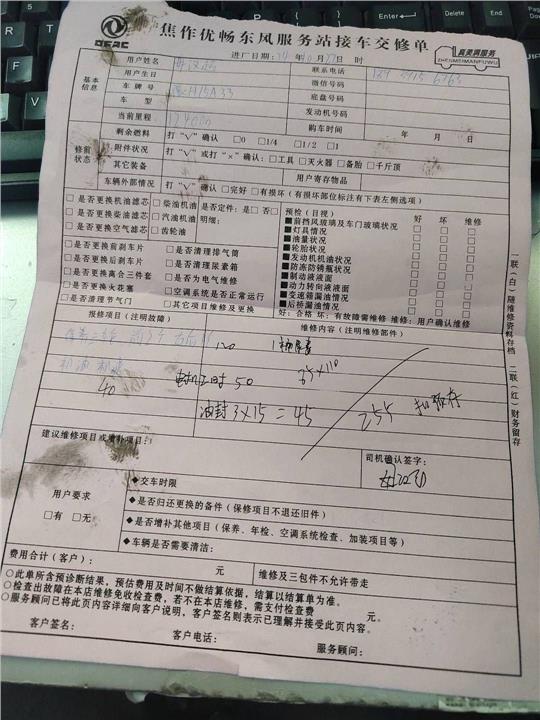 DFAC
焦作优畅东风服务站接车交修单
真美满服务
ZHENMEIMANFUWU
进厂日期: 年 10 月 27 日 时
基本信息
用户姓名
联系电话
用户生日
微信号码
车牌号
底盘号码
车型
发动机号码
当前里程
购车时间: 年 月 日
修前状态
剩余燃料 打“√”确认 □0 □1/4 □1/2 □1
附件状况 打“√”或打“×”确认: □工具 □灭火器 □备胎 □千斤顶
其它装备
用户寄存物品
车辆外部情况 打“√”确认 □完好 □有损坏(有损坏部位标注有下表左侧选项)
□是否更换机油滤芯 □柴油机油 是否定件: □是 □否
□是否更换柴油滤芯 □汽油机油 明细:
□是否更换空气滤芯 □齿轮油
□是否更换前刹车片 □是否清理排气筒
□是否更换后刹车片 □是否清理尿素箱
□是否更换离合三件套 □是否为电气维修
□是否更换火花塞 □空调系统是否正常运行
□是否清理节气门 □其它项目维修及更换
预检(目视) 好 坏 维修
■前挡风玻璃及车门玻璃状况 □ □ □
■灯具情况 □ □ □
■油量状况 □ □ □
■轮胎状况 □ □ □
■发动机机油状况 □ □ □
■防冻防锈瓶状况 □ □ □
■制动液液面 □ □ □
■动力转向液液面 □ □ □
■变速箱漏油情况 □ □ □
■后桥漏油情况 □ □ □
好: 合格 坏: 有故障需维修 维修: 用户确认维修
报修项目(注明故障)
维修内容(注明维修部件)
120
机油
40
50
65×110
油封 3×15=45
255
建议维修项目或增补项目:
司机确认签字:
用户要求
□有 □无
◆交车时限
◆是否归还更换的备件(保修项目不退还旧件)
◆是否增补其他项目(保养、年检、空调系统检查、加装项目等)
◆车辆是否需要清洁:
费用合计(客户): 元
维修及三包件不允许带走
○此单所含预诊断结果,预估费用及时间不做结算依据,结算以结算单为准。
○检查出故障在本店维修免收检查费,若不在本店维修,需支付检查费 元。
○服务顾问已将此页内容详细向客户说明,客户签名则表示已理解并接受此页内容。
客户签名: 客户电话: 服务顾问:
一联(白)随维修资料存档 二联(红)财务留存